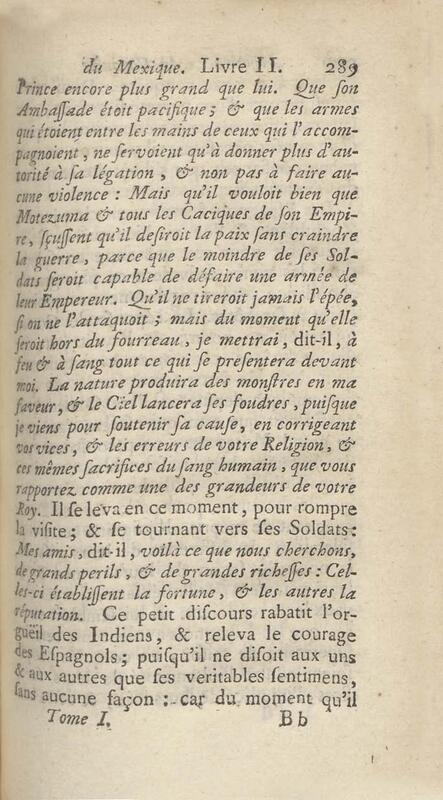 du Mexique. Livre II. 289
Prince encore plus grand que lui. Que ſon
Ambaſſade étoit pacifique ; & que les armes
qui étoient entre les mains de ceux qui l'accom-
pagnoient, ne ſervoient qu'à donner plus d'au-
torité à ſa légation, & non pas à faire au-
cune violence : Mais qu'il vouloit bien que
Motezuma & tous les Caciques de ſon Empi-
re, ſçuſſent qu'il deſiroit la paix ſans craindre
la guerre, parce que le moindre de ſes Sol-
dats ſeroit capable de défaire une armée de
leur Empereur. Qu'il ne tireroit jamais l'épée,
ſi on ne l'attaquoit ; mais du moment qu'elle
ſeroit hors du fourreau, je mettrai, dit-il, à
feu & à ſang tout ce qui ſe preſentera devant
moi. La nature produira des monſtres en ma
faveur, & le Ciel lancera ſes foudres, puiſque
je viens pour ſoutenir ſa cauſe, en corrigeant
vos vices, & les erreurs de votre Religion, &
ces mêmes ſacrifices du ſang humain, que vous
rapportez comme une des grandeurs de votre
Roy. Il ſe leva en ce moment, pour rompre
la viſite ; & ſe tournant vers ſes Soldats:
Mes amis, dit-il, voilà ce que nous cherchons,
de grands perils, & de grandes richeſſes : Cel-
les-ci établiſſent la fortune, & les autres la
réputation. Ce petit diſcours rabatit l'or-
guëil des Indiens, & releva le courage
des Eſpagnols ; puiſqu'il ne diſoit aux uns
& aux autres que ſes veritables ſentimens,
ſans aucune façon : car du moment qu'il
Tome I. B b